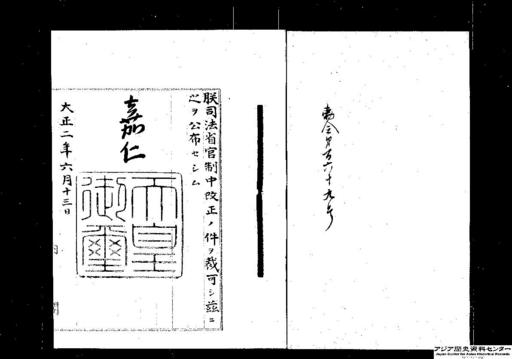 勅令第百六十九号
朕司法省官制中改正ノ件ヲ裁可シ茲ニ
之ヲ公布セシム
嘉仁
天皇
御璽
大正二年六月十三日
アジア歴史資料センター
Japan Center for Asian Historical Records